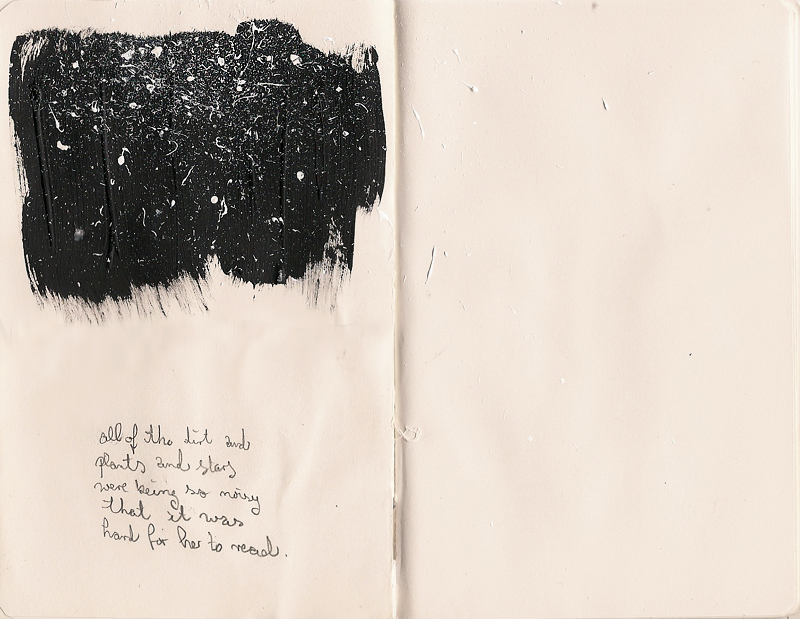 all of the dirt and
plants and stars
were being so noisy
that it was
hard for her to read.